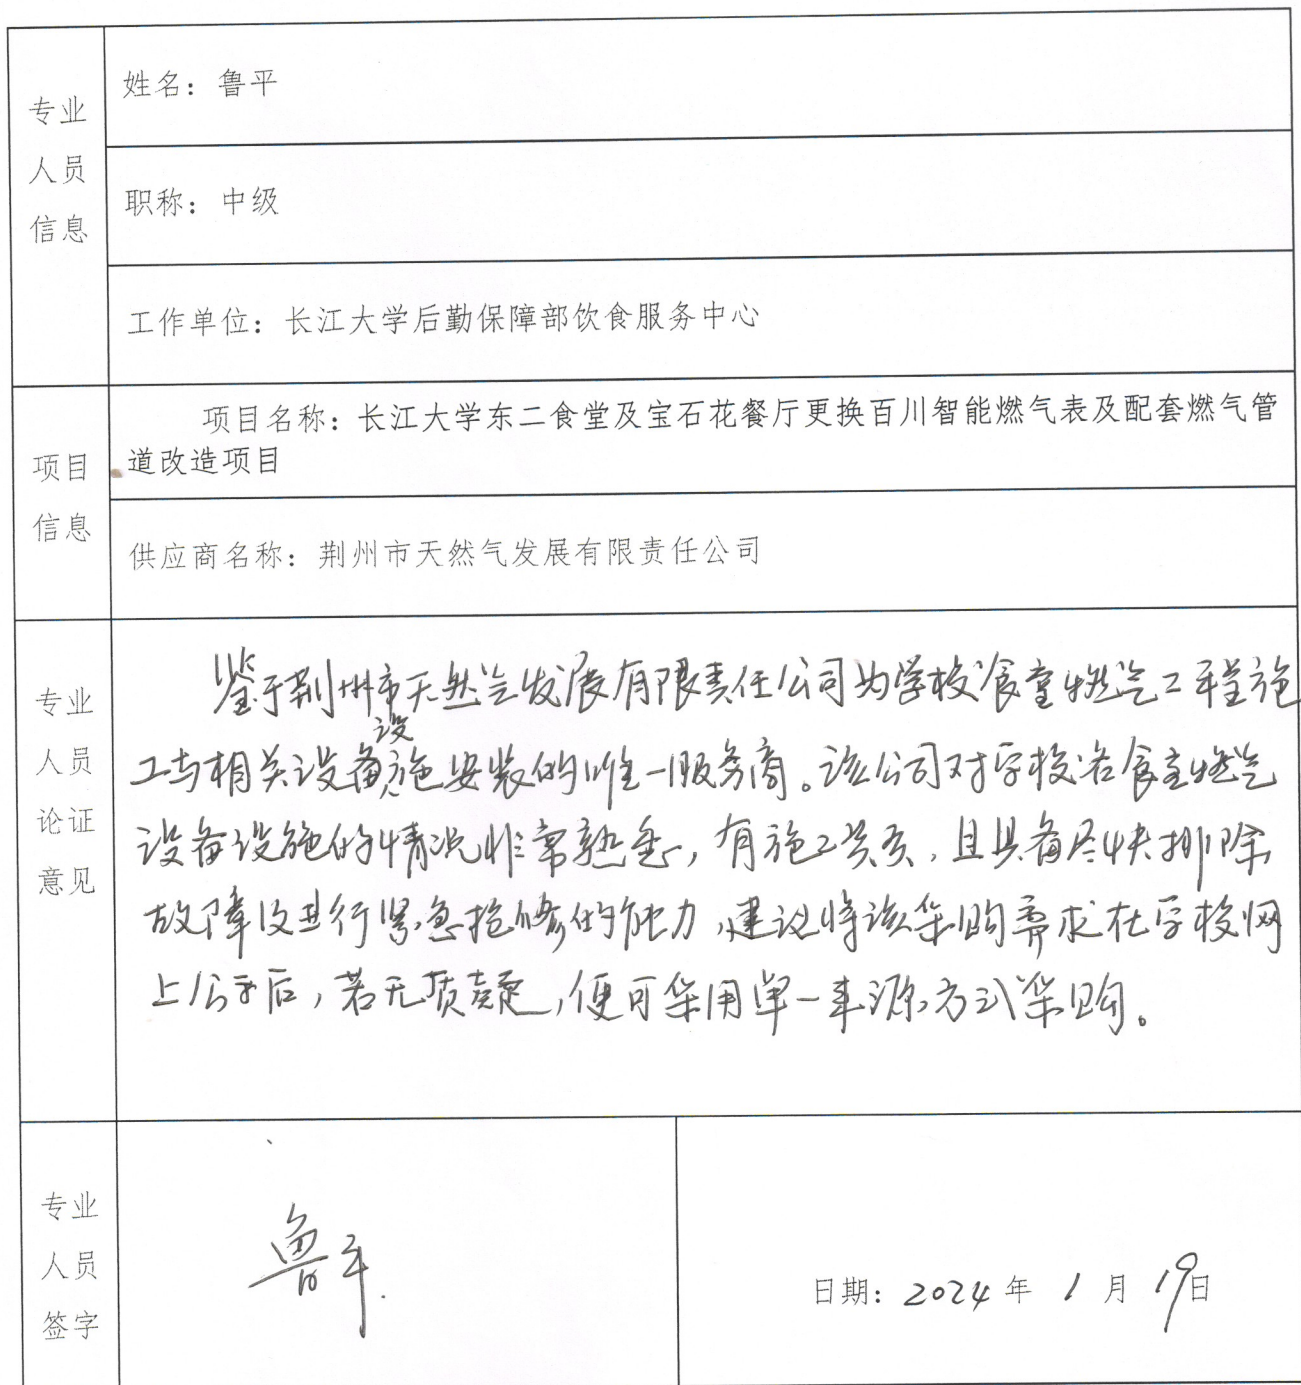 专业
人员
信息
姓名：鲁平
职称：中级
工作单位：长江大学后勤保障部饮食服务中心
项目
信息
项目名称：长江大学东二食堂及宝石花餐厅更换百川智能燃气表及配套燃气管
道改造项目
供应商名称：荆州市天然气发展有限责任公司
专业
人员
论证
意见
鉴于荆州市天然气发展有限责任公司为学校食堂燃气工程施
工与相关设备设施安装的唯一服务商。该公司对学校各食堂燃气
设备设施的情况非常熟悉，有施工资质，且具备尽快排除
故障及进行紧急抢修的能力，建议将该采购需求在学校网
上公示后，若无质疑，便可采用单一来源方式采购。
专业
人员
签字
鲁平
日期：2024年1月19日